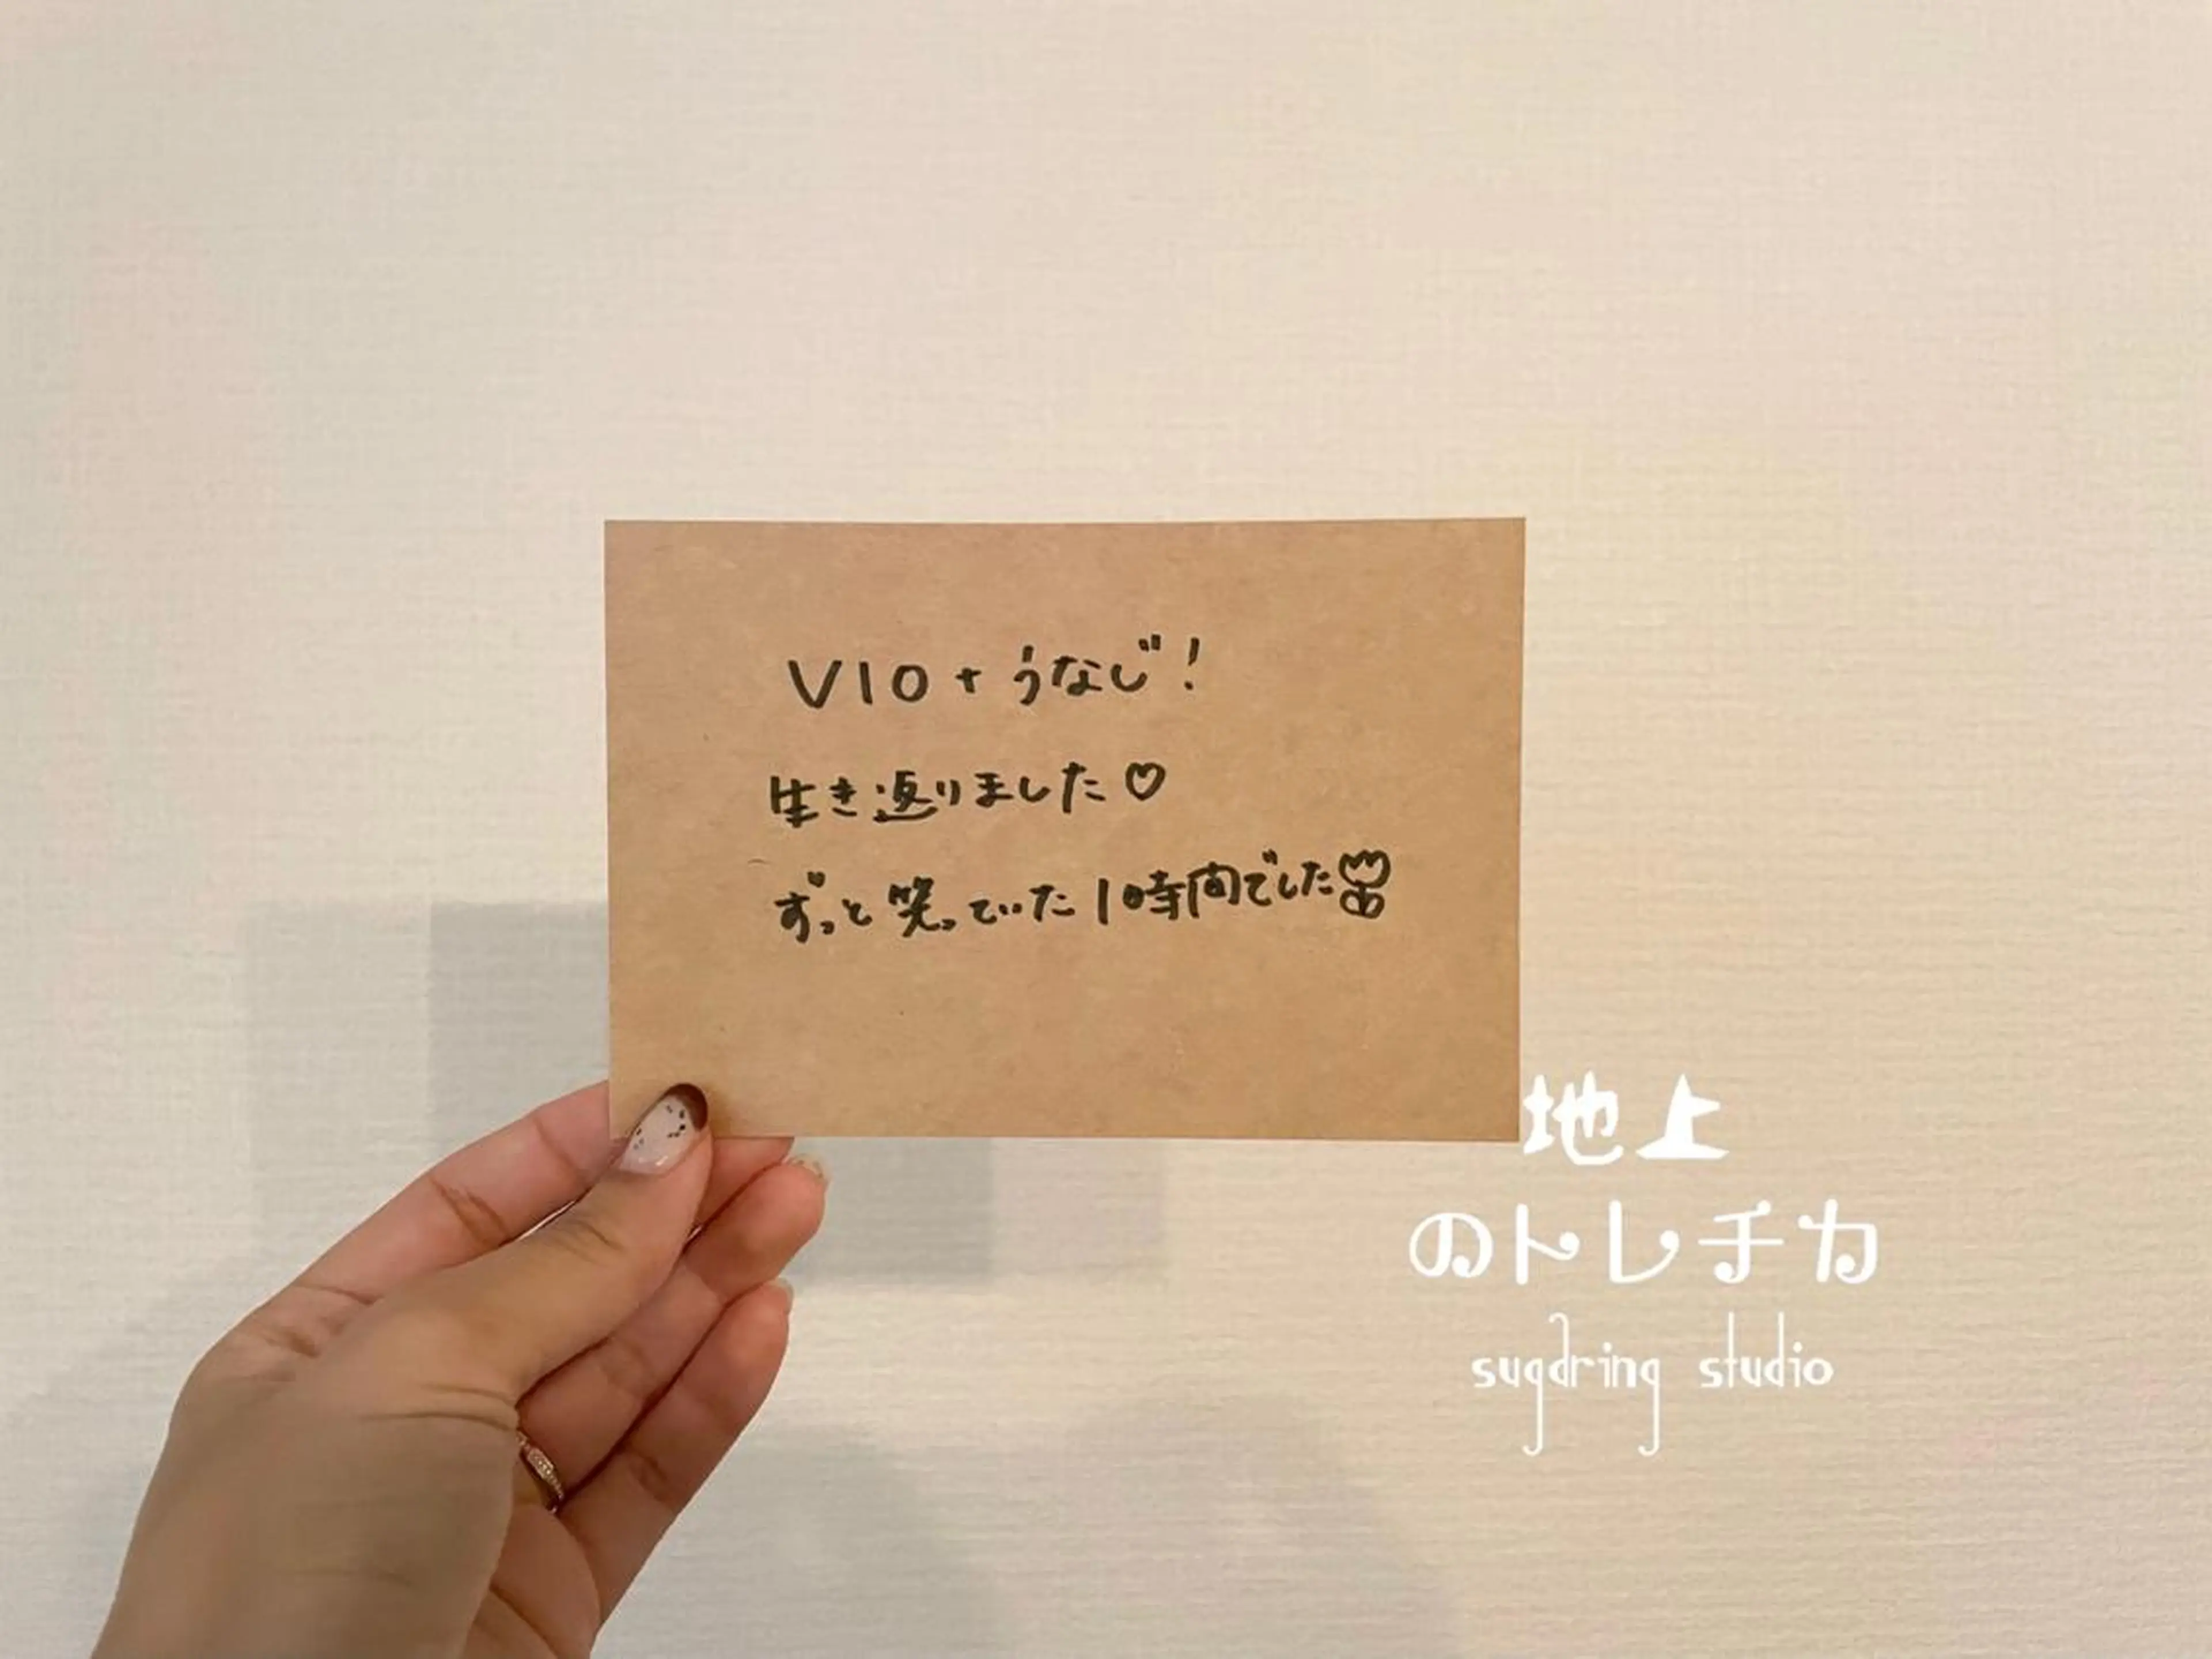 VIO + うなじ!
生き返りました♡
ずっと笑っていた1時間でした🌷
地上
のトレチカ
sugaring studio